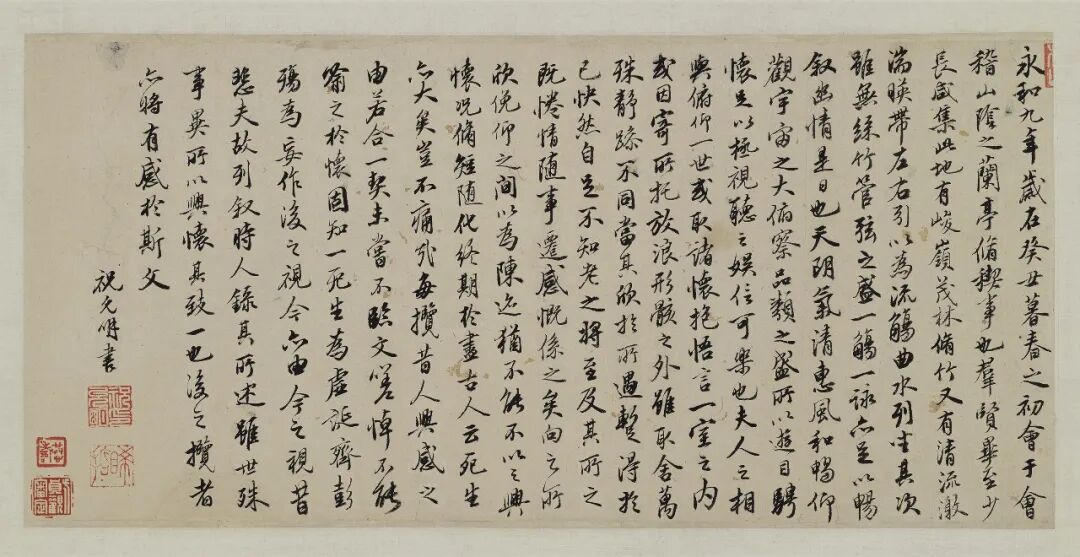 永和九年歲在癸丑暮春之初會于會
稽山陰之蘭亭脩稧事也羣賢畢至少
長咸集此地有峻嶺茂林脩竹又有清流激
湍暎帶左右引以為流觴曲水列坐其次
雖無絲竹管弦之盛一觴一詠亦足以暢
叙幽情是日也天朗氣清惠風和暢仰
觀宇宙之大俯察品類之盛所以遊目騁
懷足以極視聽之娛信可樂也夫人之相
與俯仰一世或取諸懷抱悟言一室之內
或因寄所托放浪形骸之外雖取舍萬
殊靜躁不同當其欣於所遇暫得於
己快然自足不知老之將至及其所之
既惓情隨事遷感慨係之矣向之所
欣俛仰之間以為陳迹猶不能不以之興
懷況脩短隨化終期於盡古人云死生
亦大矣豈不痛哉每攬昔人興感之
由若合一契未嘗不臨文嗟悼不能
喻之於懷固知一死生為虛誕齊彭
殤為妄作後之視今亦由今之視昔
悲夫故列叙時人錄其所述雖世殊
事異所以興懷其致一也後之攬者
亦將有感於斯文
祝允明書